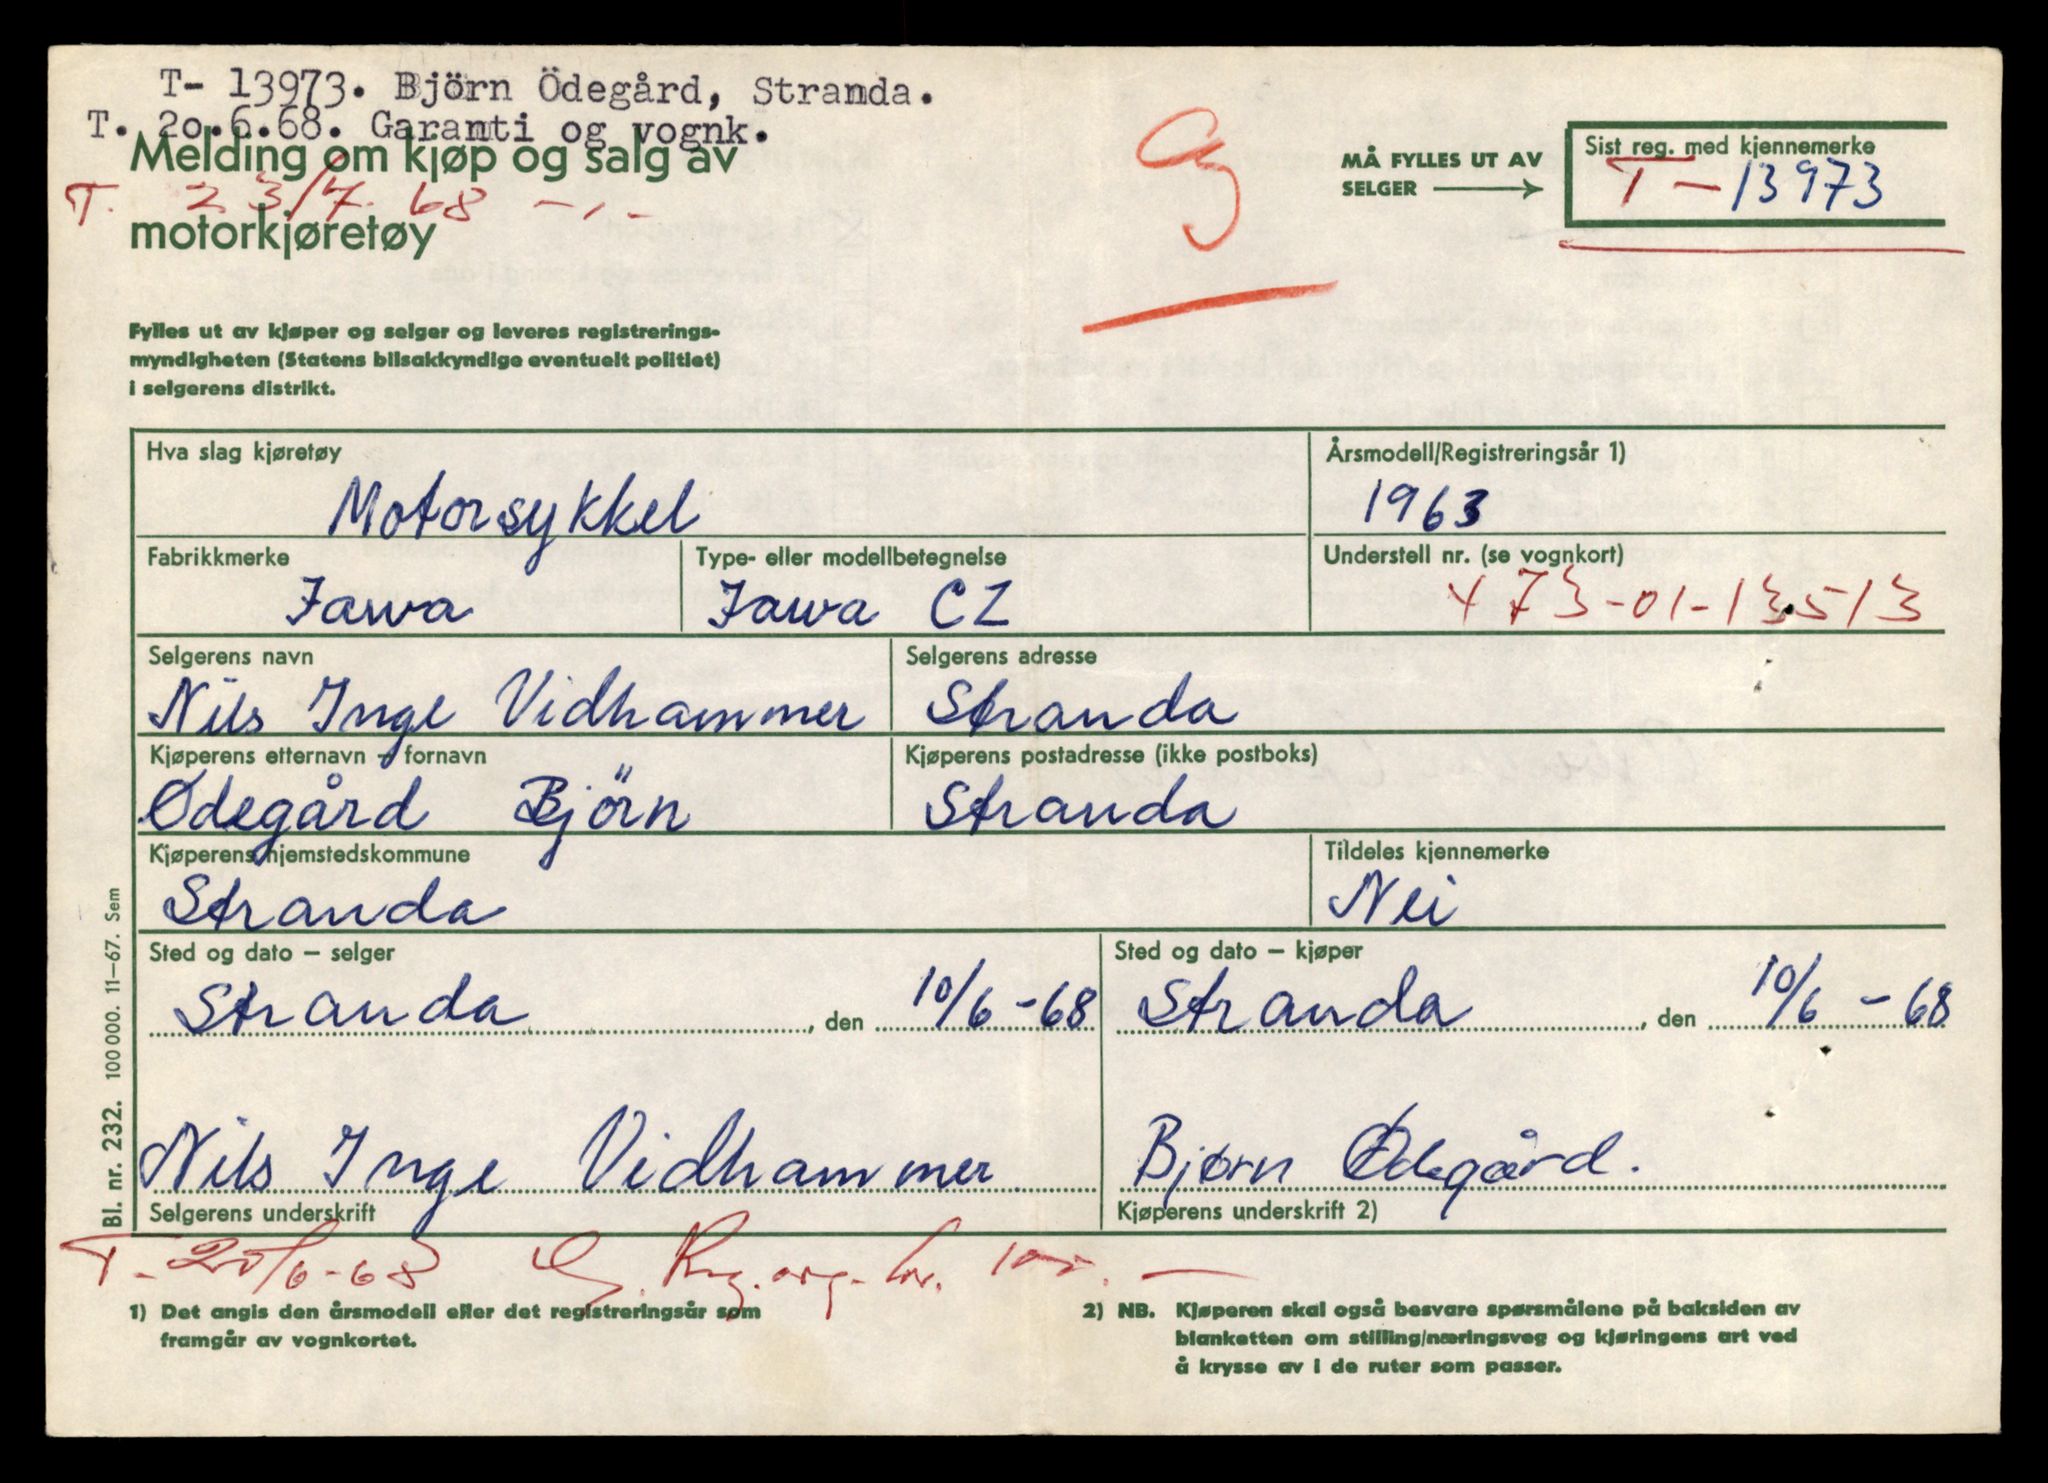 T- 13973. Björn Ödegård, Stranda.
T. 20.6.68. Garanti og vognk.
Melding om kjøp og salg av
T. 23/7. 68 -,-
motorkjøretøy
MÅ FYLLES UT AV
SELGER
Sist reg. med kjennemerke
T - 13973
Fylles ut av kjøper og selger og leveres registrerings-
myndigheten (Statens bilsakkyndige eventuelt politiet)
i selgerens distrikt.
Hva slag kjøretøy
Motorsykkel
Årsmodell/Registreringsår 1)
1963
Fabrikkmerke
Jawa
Type- eller modellbetegnelse
Jawa CZ
Understell nr. (se vognkort)
473-01-13513
Selgerens navn
Nils Inge Vidhammer
Selgerens adresse
Stranda
Kjøperens etternavn - fornavn
Ødegård Björn
Kjøperens postadresse (ikke postboks)
Stranda
Kjøperens hjemstedskommune
Stranda
Tildeles kjennemerke
Nei
Sted og dato – selger
Stranda, den 10/6 - 68
Sted og dato – kjøper
Stranda, den 10/6 - 68
Nils Inge Vidhammer
Selgerens underskrift
Bjørn Ødegård.
Kjøperens underskrift 2)
T - 20/6-68
1) Det angis den årsmodell eller det registreringsår som
framgår av vognkortet.
2) NB. Kjøperen skal også besvare spørsmålene på baksiden av
blanketten om stilling/næringsveg og kjøringens art ved
å krysse av i de ruter som passer.
Bl. nr. 232. 100 000. 11—67. Sem